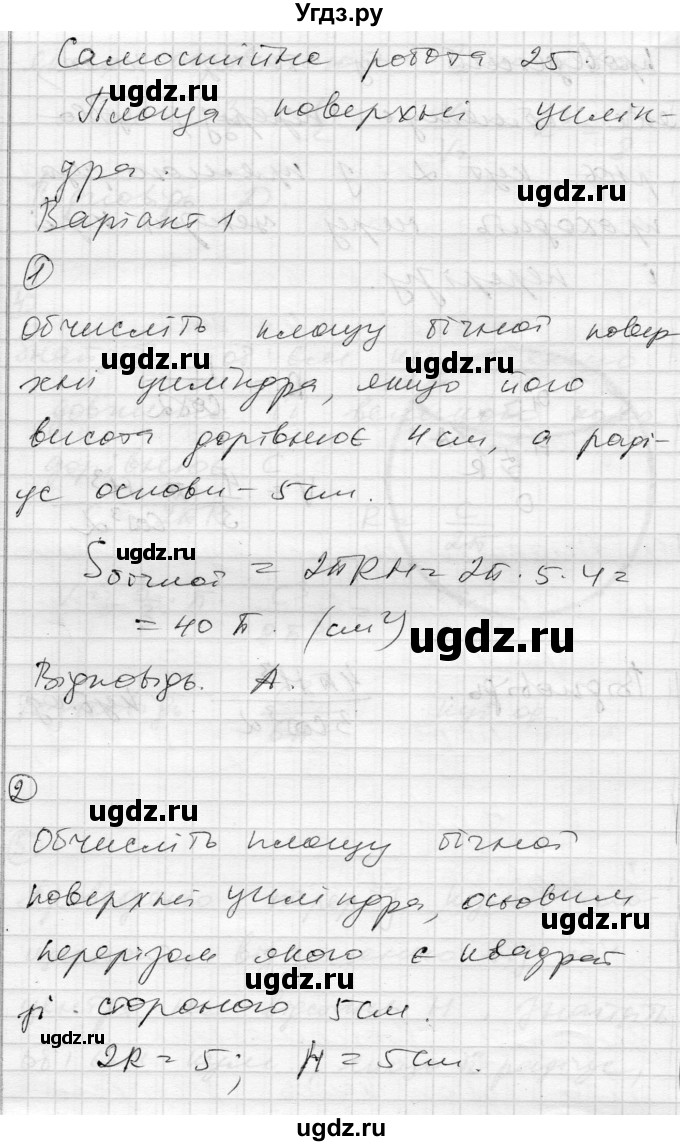 Угдз.ру
Самостійна робота 25.
ugdz.ru
Площа поверхні цилін-
дра.
ugdz.ru
Варіант 1
①
Обчисліть площу бічної повер
ugdz.ru ugdz.ru
хні циліндра, якщо його
висота дорівнює 4 см, а раді-
ус основи - 5 см.
ugdz.ru
Sбічної = 2πRH = 2π · 5 · 4 =
= 40π. (см²)
ugdz.ru
Відповідь. А.
②
ugdz.ru
Обчисліть площу бічної
поверхні циліндра, осьовим
ugdz.ru
перерізом якого є квадрат
ugdz.ru
зі стороною 5 см.
ugdz.ru
2R = 5; H = 5 см.
ugdz.ru